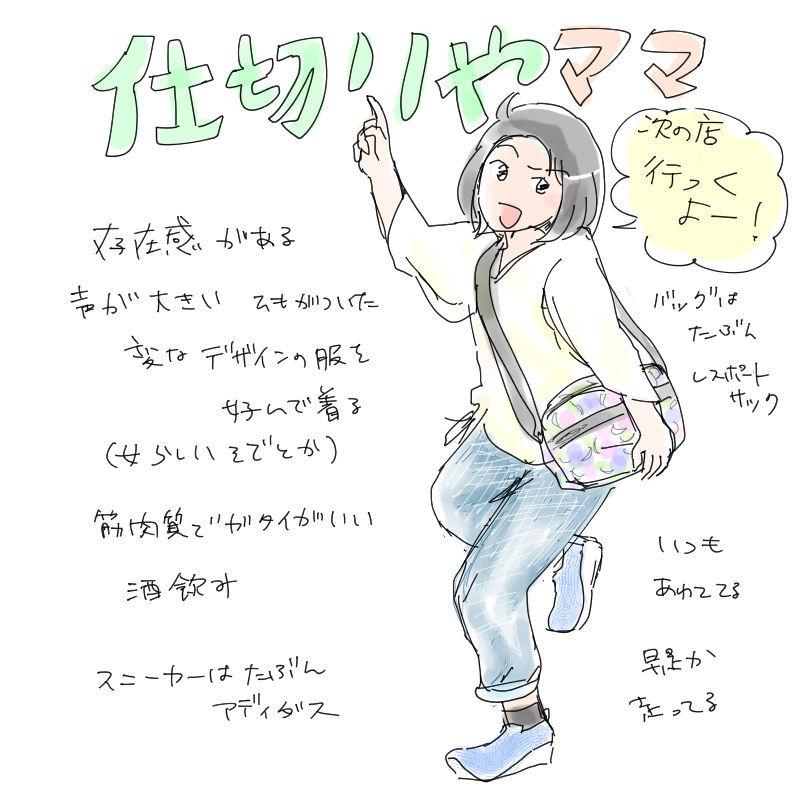 仕切りやママ
次の店
行っく
よー!
存在感がある
声が大きい ひもがついた
変なデザインの服を
好んで着る
(女らしいそでとか)
筋肉質でガタイがいい
酒飲み
スニーカーはたぶん
アディダス
バッグは
たぶん
レスポート
サック
いつも
あわててる
早足か
走ってる